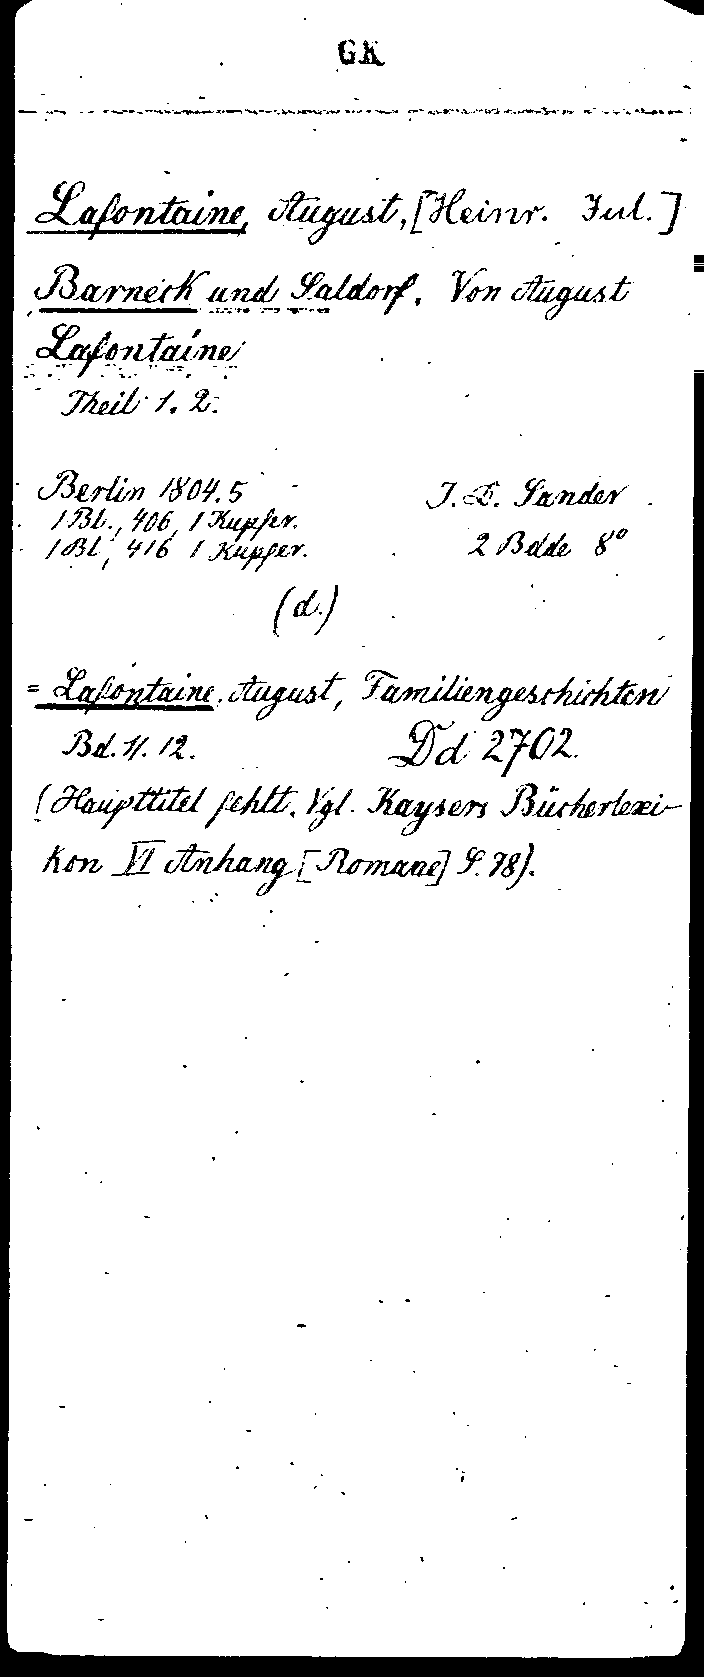 GK
Lafontaine, August, [Heinr. Jul.]
Barneck und Saldorf. Von August
Lafontaine
Theil 1. 2.
Berlin 1804.5 J. D. Sander
1 Bl., 406, 1 Kupfer.
1 Bl, 416 1 Kupfer. 2 Bdde 8°
(d.)
= Lafontaine, August, Familiengeschichten
Bd. 11. 12. Dd 2702.
(Haupttitel fehlt. Vgl. Kaysers Bücherlexi-
kon VI Anhang [Romane] S. 78).